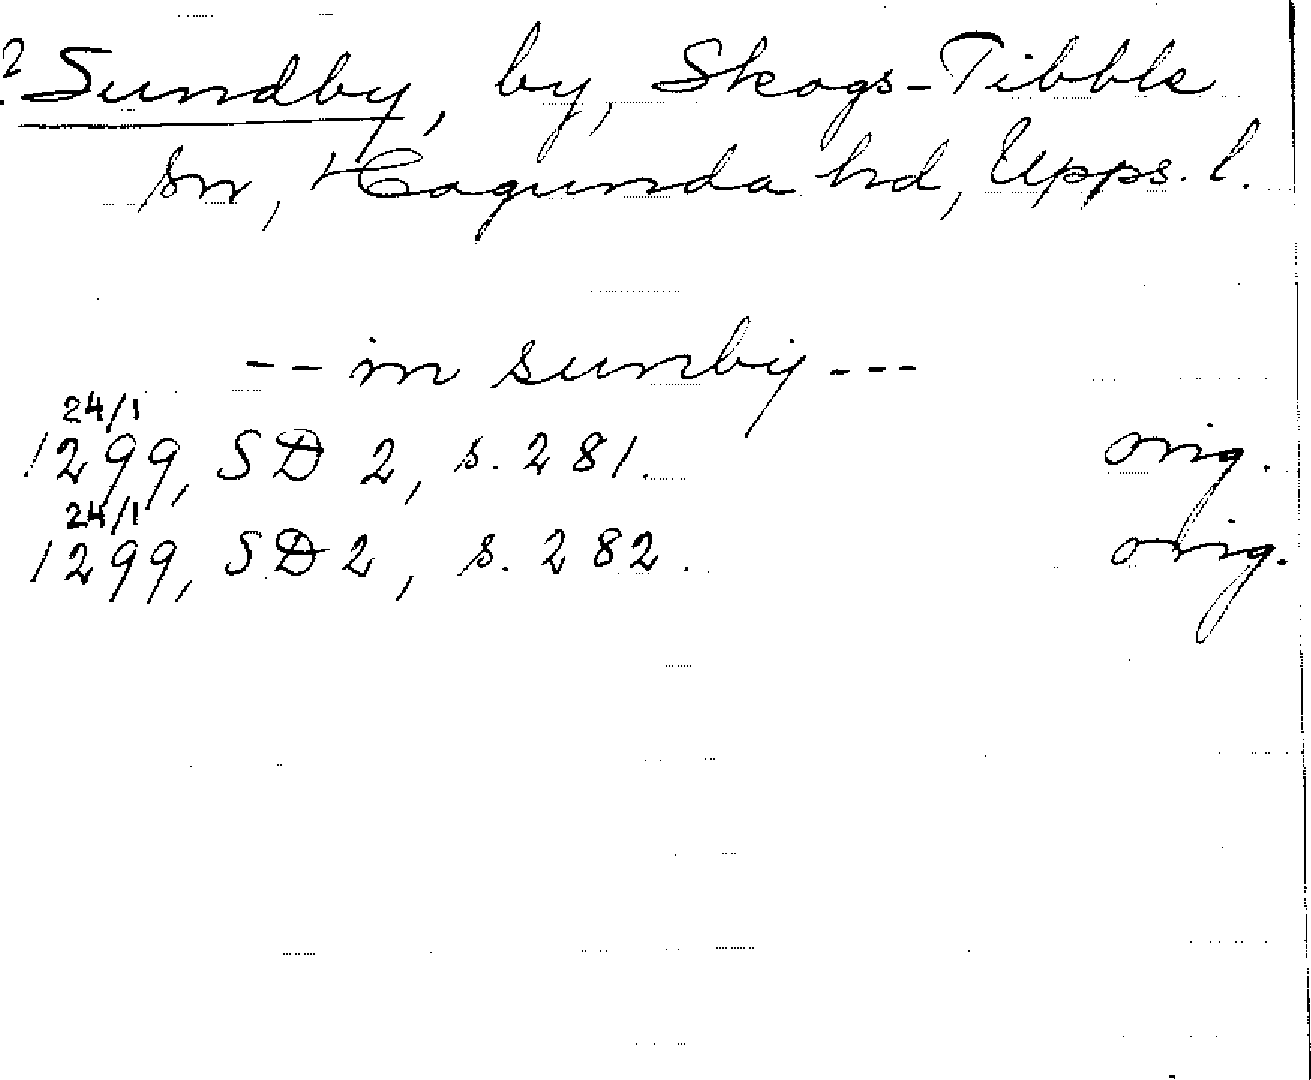 ? Sundby, by, Skogs-Tibble
sn, Hagunda hd, Upps. l.
-- in sunby ---
24/1
1299, SD 2, s. 281. orig.
24/1
1299, SD 2, s. 282. orig.